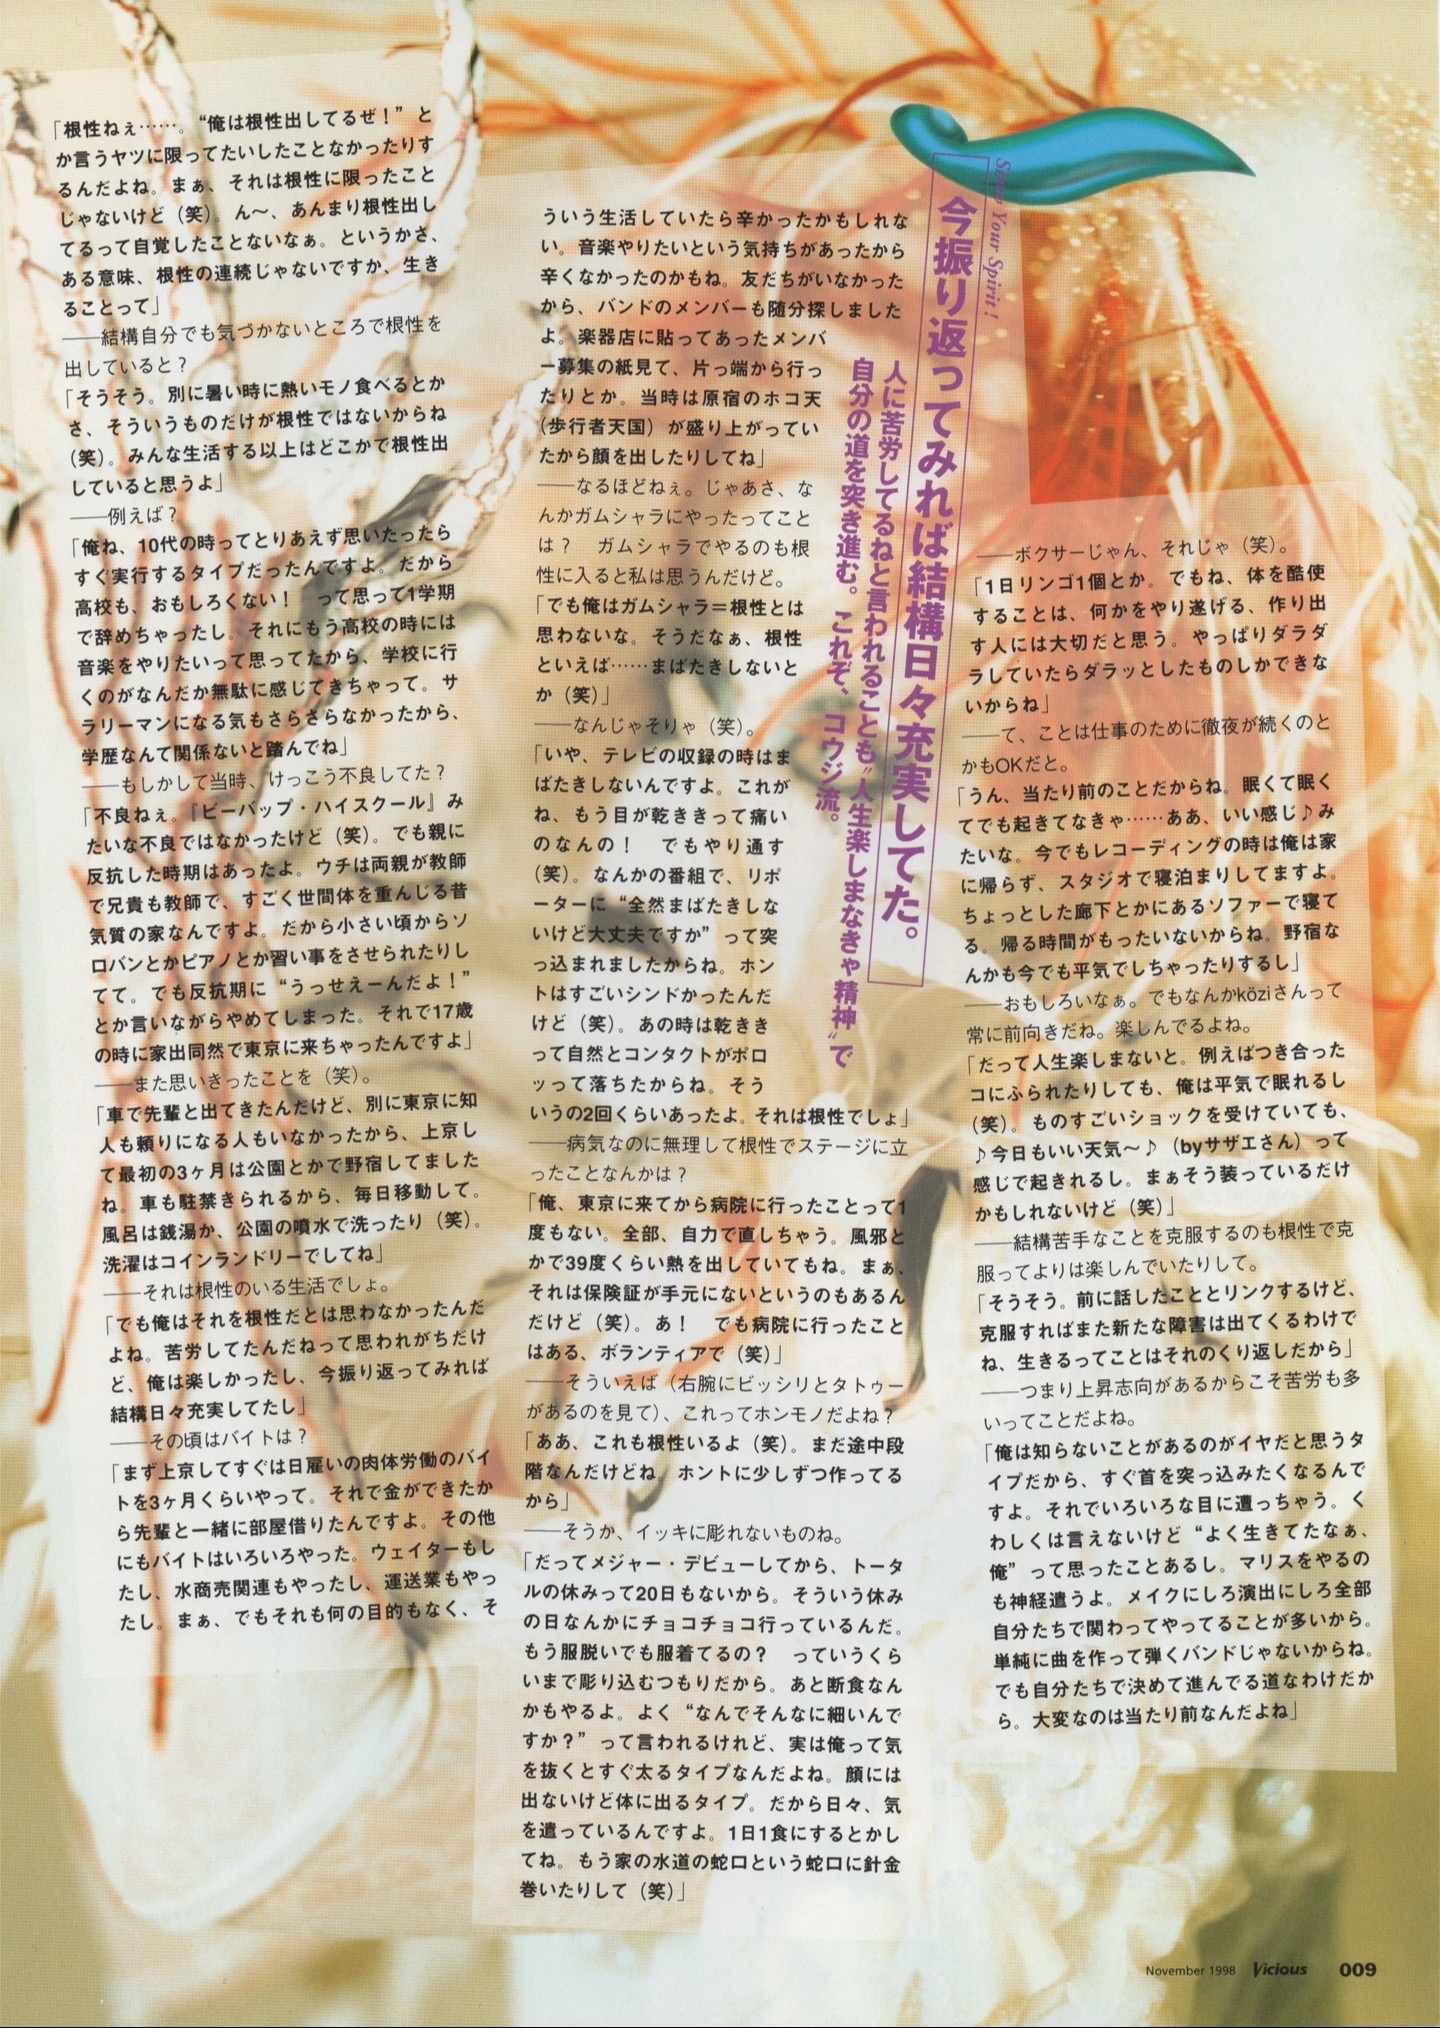 「根性ねぇ……。“俺は根性出してるぜ！”と
か言うヤツに限ってたいしたことなかったりす
るんだよね。まぁ、それは根性に限ったこと
じゃないけど（笑）。ん〜、あんまり根性出し
てるって自覚したことないなぁ。というかさ、
ある意味、根性の連続じゃないですか、生き
ることって」
――結構自分でも気づかないところで根性を
出していると？
「そうそう。別に暑い時に熱いモノ食べるとか
さ、そういうものだけが根性ではないからね
（笑）。みんな生活する以上はどこかで根性出
していると思うよ」
――例えば？
「俺ね、10代の時ってとりあえず思いたったら
すぐ実行するタイプだったんですよ。だから
高校も、おもしろくない！　って思って1学期
で辞めちゃったし。それにもう高校の時には
音楽をやりたいって思ってたから、学校に行
くのがなんだか無駄に感じてきちゃって。サ
ラリーマンになる気もさらさらなかったから、
学歴なんて関係ないと踏んでね」
――もしかして当時、けっこう不良してた？
「不良ねぇ。『ビーバップ・ハイスクール』み
たいな不良ではなかったけど（笑）。でも親に
反抗した時期はあったよ。ウチは両親が教師
で兄貴も教師で、すごく世間体を重んじる昔
気質の家なんですよ。だから小さい頃からソ
ロバンとかピアノとか習い事をさせられたりし
てて。でも反抗期に“うっせえーんだよ！”
とか言いながらやめてしまった。それで17歳
の時に家出同然で東京に来ちゃったんですよ」
――また思いきったことを（笑）。
「車で先輩と出てきたんだけど、別に東京に知
人も頼りになる人もいなかったから、上京し
て最初の3ヶ月は公園とかで野宿してました
ね。車も駐禁きられるから、毎日移動して。
風呂は銭湯か、公園の噴水で洗ったり（笑）。
洗濯はコインランドリーでしてね」
――それは根性のいる生活でしょ。
「でも俺はそれを根性だとは思わなかったんだ
よね。苦労してたんだねって思われがちだけ
ど、俺は楽しかったし、今振り返ってみれば
結構日々充実してたし」
――その頃はバイトは？
「まず上京してすぐは日雇いの肉体労働のバイ
トを3ヶ月くらいやって。それで金ができたか
ら先輩と一緒に部屋借りたんですよ。その他
にもバイトはいろいろやった。ウェイターもし
たし、水商売関連もやったし、運送業もやっ
たし。まぁ、でもそれも何の目的もなく、そ
ういう生活していたら辛かったかもしれな
い。音楽やりたいという気持ちがあったから
辛くなかったのかもね。友だちがいなかった
から、バンドのメンバーも随分探しました
よ。楽器店に貼ってあったメンバ
ー募集の紙見て、片っ端から行っ
たりとか。当時は原宿のホコ天
（歩行者天国）が盛り上がってい
たから顔を出したりしてね」
――なるほどねぇ。じゃあさ、な
んかガムシャラにやったってこと
は？　ガムシャラでやるのも根
性に入ると私は思うんだけど。
「でも俺はガムシャラ＝根性とは
思わないな。そうだなぁ、根性
といえば……まばたきしないと
か（笑）」
――なんじゃそりゃ（笑）。
「いや、テレビの収録の時はま
ばたきしないんですよ。これが
ね、もう目が乾ききって痛い
のなんの！　でもやり通す
（笑）。なんかの番組で、リポ
ーターに“全然まばたきしな
いけど大丈夫ですか”って突
っ込まれましたからね。ホン
トはすごいシンドかったんだ
けど（笑）。あの時は乾きき
って自然とコンタクトがポロ
ッって落ちたからね。そう
いうの2回くらいあったよ。それは根性でしょ」
――病気なのに無理して根性でステージに立
ったことなんかは？
「俺、東京に来てから病院に行ったことって1
度もない。全部、自力で直しちゃう。風邪と
かで39度くらい熱を出していてもね。まぁ、
それは保険証が手元にないというのもあるん
だけど（笑）。あ！　でも病院に行ったこと
はある、ボランティアで（笑）」
――そういえば（右腕にビッシリとタトゥー
があるのを見て）、これってホンモノだよね？
「ああ、これも根性いるよ（笑）。まだ途中段
階なんだけどね。ホントに少しずつ作ってる
から」
――そうか、イッキに彫れないものね。
「だってメジャー・デビューしてから、トータ
ルの休みって20日もないから。そういう休み
の日なんかにチョコチョコ行っているんだ。
もう服脱いでも服着てるの？　っていうくら
いまで彫り込むつもりだから。あと断食なん
かもやるよ。よく“なんでそんなに細いんで
すか？”って言われるけれど、実は俺って気
を抜くとすぐ太るタイプなんだよね。顔には
出ないけど体に出るタイプ。だから日々、気
を遣っているんですよ。1日1食にするとかし
てね。もう家の水道の蛇口という蛇口に針金
巻いたりして（笑）」
Show Your Spirit !
今振り返ってみれば結構日々充実してた。
人に苦労してるねと言われることも〝人生楽しまなきゃ精神〟で
自分の道を突き進む。これぞ、コウジ流。
――ボクサーじゃん、それじゃ（笑）。
「1日リンゴ1個とか。でもね、体を酷使
することは、何かをやり遂げる、作り出
す人には大切だと思う。やっぱりダラダ
ラしていたらダラッとしたものしかできな
いからね」
――て、ことは仕事のために徹夜が続くのと
かもOKだと。
「うん、当たり前のことだからね。眠くて眠く
てでも起きてなきゃ……ああ、いい感じ♪み
たいな。今でもレコーディングの時は俺は家
に帰らず、スタジオで寝泊まりしてますよ。
ちょっとした廊下とかにあるソファーで寝て
る。帰る時間がもったいないからね。野宿な
んかも今でも平気でしちゃったりするし」
――おもしろいなぁ。でもなんかköziさんって
常に前向きだね。楽しんでるよね。
「だって人生楽しまないと。例えばつき合った
コにふられたりしても、俺は平気で眠れるし
（笑）。ものすごいショックを受けていても、
♪今日もいい天気〜♪（byサザエさん）って
感じで起きれるし。まぁそう装っているだけ
かもしれないけど（笑）」
――結構苦手なことを克服するのも根性で克
服ってよりは楽しんでいたりして。
「そうそう。前に話したこととリンクするけど、
克服すればまた新たな障害は出てくるわけで
ね、生きるってことはそれのくり返しだから」
――つまり上昇志向があるからこそ苦労も多
いってことだよね。
「俺は知らないことがあるのがイヤだと思うタ
イプだから、すぐ首を突っ込みたくなるんで
すよ。それでいろいろな目に遭っちゃう。く
わしくは言えないけど“よく生きてたなぁ、
俺”って思ったことあるし。マリスをやるの
も神経遣うよ。メイクにしろ演出にしろ全部
自分たちで関わってやってることが多いから。
単純に曲を作って弾くバンドじゃないからね。
でも自分たちで決めて進んでる道なわけだか
ら。大変なのは当たり前なんだよね」
November 1998 Vicious 009